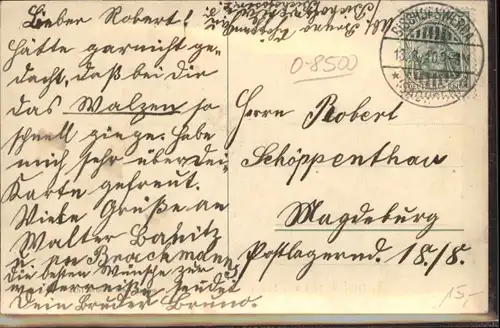 Lieber Robert!
Hätte garnicht ge-
dacht, daß bei dir
das Walzen so
schnell ginge. Habe
mich sehr über dei-
Karte gefreut.
Viele Grüße an
Walter Banitz
u. an Brachmann
die besten Wünsche zur
weiterreise sendet
Dein Bruder Bruno.
BISCHOFSWERDA
0-8500
Herrn Robert
Schöppenthau
Magdeburg
Postlagernd. 18./8.
15,-